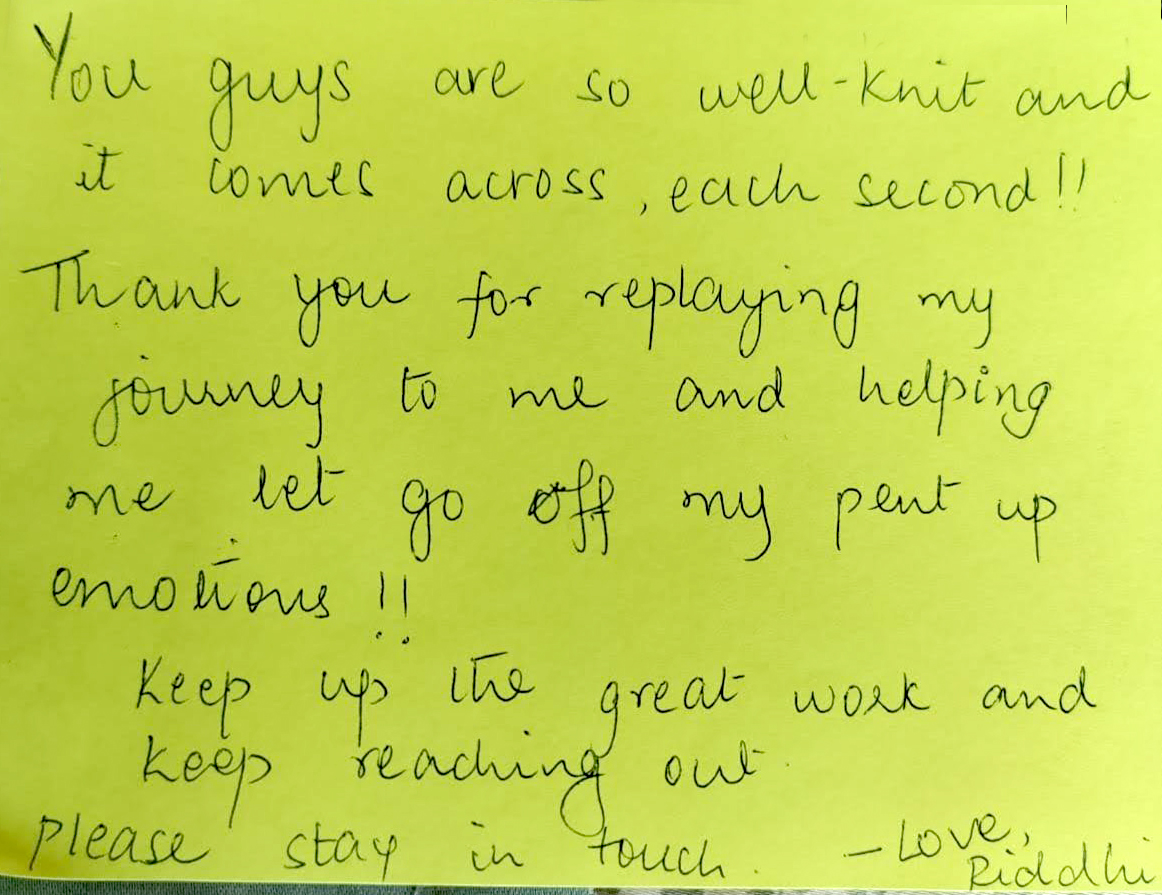 You guys are so well-knit and
it comes across, each second!!
Thank you for replaying my
journey to me and helping
me let go off my pent up
emotions!!
Keep up the great work and
keep reaching out.
Please stay in touch. - Love,
Riddhi